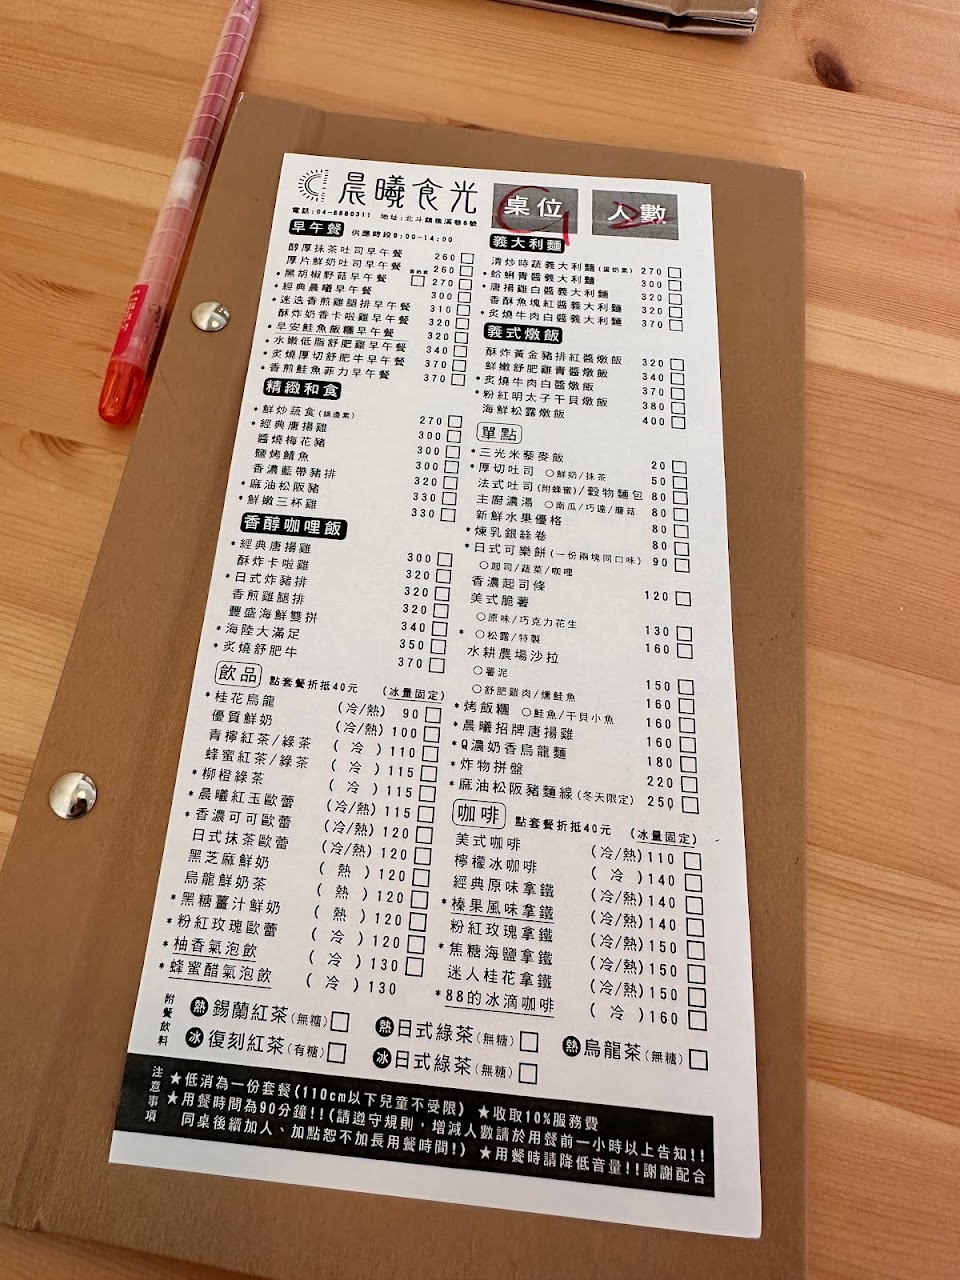 晨曦食光
電話:04-8880311 地址:北斗鎮後溪巷6號
桌位 G1
人數 2
早午餐 供應時段9:00-14:00
醇厚抹茶吐司早午餐 260
厚片鮮奶吐司早午餐 260
*黑胡椒野菇早午餐 蛋奶素 270
*經典晨曦早午餐 300
*迷迭香煎雞腿排早午餐 310
酥炸奶香卡啦雞早午餐 320
*早安鮭魚飯糰早午餐 320
*水嫩低脂舒肥雞早午餐 340
*炙燒厚切舒肥牛早午餐 370
*香煎鮭魚菲力早午餐 370
精緻和食
*鮮炒蔬食(鍋邊素) 270
*經典唐揚雞 300
醬燒梅花豬 300
鹽烤鯖魚 300
香濃藍帶豬排 320
*麻油松阪豬 330
*鮮嫩三杯雞 330
香醇咖哩飯
*經典唐揚雞 300
酥炸卡啦雞 320
*日式炸豬排 320
香煎雞腿排 320
豐盛海鮮雙拼 340
*海陸大滿足 350
*炙燒舒肥牛 370
飲品 點套餐折抵40元 (冰量固定)
*桂花烏龍 (冷/熱) 90
優質鮮奶 (冷/熱) 100
青檸紅茶/綠茶 ( 冷 ) 110
蜂蜜紅茶/綠茶 ( 冷 ) 115
*柳橙綠茶 ( 冷 ) 115
*晨曦紅玉歐蕾 (冷/熱) 115
*香濃可可歐蕾 (冷/熱) 120
日式抹茶歐蕾 (冷/熱) 120
黑芝麻鮮奶 ( 熱 ) 120
烏龍鮮奶茶 ( 熱 ) 120
*黑糖薑汁鮮奶 ( 熱 ) 120
*粉紅玫瑰歐蕾 ( 冷 ) 120
*柚香氣泡飲 ( 冷 ) 130
*蜂蜜醋氣泡飲 ( 冷 ) 130
義大利麵
清炒時蔬義大利麵(蛋奶素) 270
*蛤蜊青醬義大利麵 300
*唐揚雞白醬義大利麵 320
香酥魚塊紅醬義大利麵 320
*炙燒牛肉白醬義大利麵 370
義式燉飯
酥炸黃金豬排紅醬燉飯 320
鮮嫩舒肥雞青醬燉飯 340
*炙燒牛肉白醬燉飯 370
*粉紅明太子干貝燉飯 380
海鮮松露燉飯 400
單點
*三光米藜麥飯 20
*厚切吐司 ○鮮奶/抹茶 50
法式吐司(附蜂蜜)/穀物麵包 80
主廚濃湯 ○南瓜/巧達/蘑菇 80
新鮮水果優格 80
*煉乳銀絲卷 80
*日式可樂餅(一份兩塊同口味) 90
○起司/蔬菜/咖哩
香濃起司條 120
美式脆薯
○原味/巧克力花生 130
* ○松露/特製 160
水耕農場沙拉
○薯泥 150
○舒肥雞肉/燻鮭魚 160
*烤飯糰 ○鮭魚/干貝小魚 160
*晨曦招牌唐揚雞 160
*Q濃奶香烏龍麵 180
*炸物拼盤 220
*麻油松阪豬麵線(冬天限定) 250
咖啡 點套餐折抵40元 (冰量固定)
美式咖啡 (冷/熱) 110
檸檬冰咖啡 ( 冷 ) 140
經典原味拿鐵 (冷/熱) 140
*榛果風味拿鐵 (冷/熱) 140
粉紅玫瑰拿鐵 (冷/熱) 150
*焦糖海鹽拿鐵 (冷/熱) 150
迷人桂花拿鐵 (冷/熱) 150
*88的冰滴咖啡 ( 冷 ) 160
附餐飲料
熱 錫蘭紅茶(無糖)
熱 日式綠茶(無糖)
熱 烏龍茶(無糖)
冰 復刻紅茶(有糖)
冰 日式綠茶(無糖)
注意事項
★低消為一份套餐(110cm以下兒童不受限) ★收取10%服務費
★用餐時間為90分鐘!!(請遵守規則，增減人數請於用餐前一小時以上告知!!
同桌後續加人、加點恕不加長用餐時間!) ★用餐時請降低音量!!謝謝配合